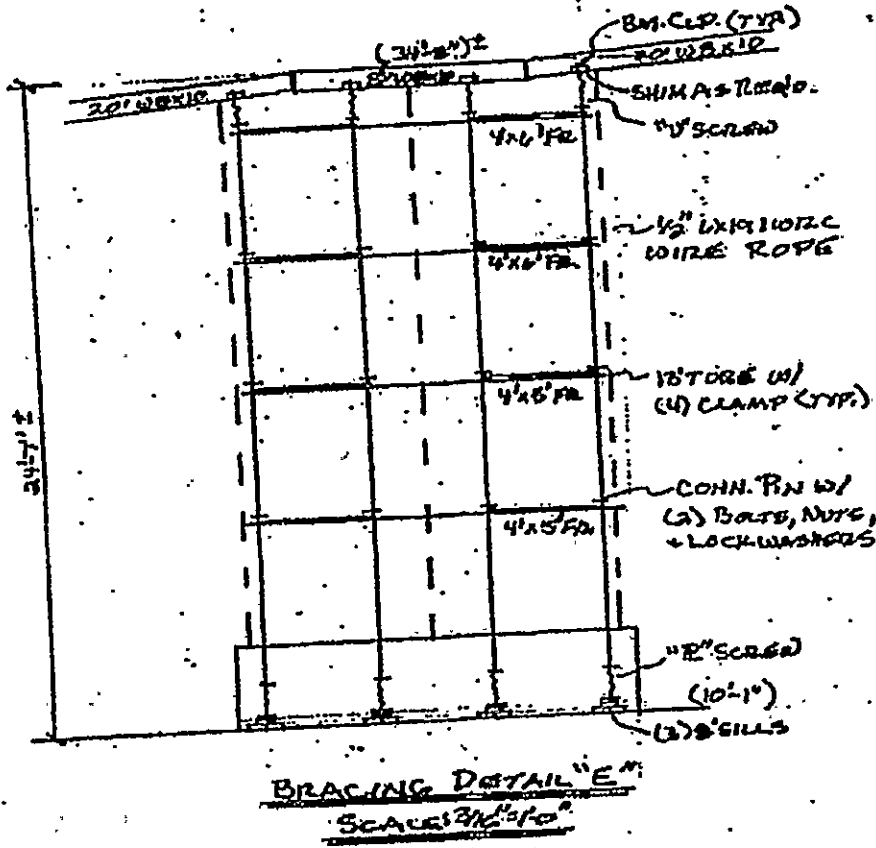 BM. CLP. (TYP)
(34'-8")±
20' W8X10
8' W8X10
20' W8X10
SHIM AS REQ'D.
"U" SCREW
4'x6' FR
1/2" 6x19 IWRC
WIRE ROPE
4'x6' FR
24'-7" ±
4'x5' FR
(4) CLAMP (TYP.)
CONN. PIN W/
(2) BOLTS, NUTS,
+ LOCKWASHERS
4'x5' FR
SCREW
(10'-1")
SILLS
BRACING DETAIL "E"
SCALE: 3/16"=1'-0"